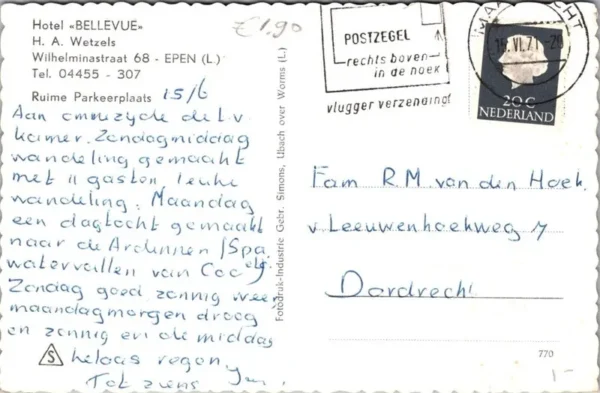 Hotel «BELLEVUE»
H. A. Wetzels
Wilhelminastraat 68 - EPEN (L.)
Tel. 04455 - 307
Ruime Parkeerplaats 15/6
€1,90
Aan ommezijde de t.v.
kamer. Zondagmiddag
wandeling gemaakt
met 11 gasten, leuke
wandeling. Maandag
een dagtocht gemaakt
naar de Ardennen / Spa
watervallen van Coo etc.
Zondag goed zonnig weer
maandagmorgen droog
en zonnig en de middag
helaas regen.
Tot ziens Jan.
S
Fotodruk-Industrie Gebr. Simons, Ubach over Worms (L.)
POSTZEGEL
rechts boven
in de hoek
vlugger verzending!
MAASTRICHT
VI.71
20 C
NEDERLAND
Fam R.M. van den Hoek.
v. Leeuwenhoekweg 7
Dordrecht
770